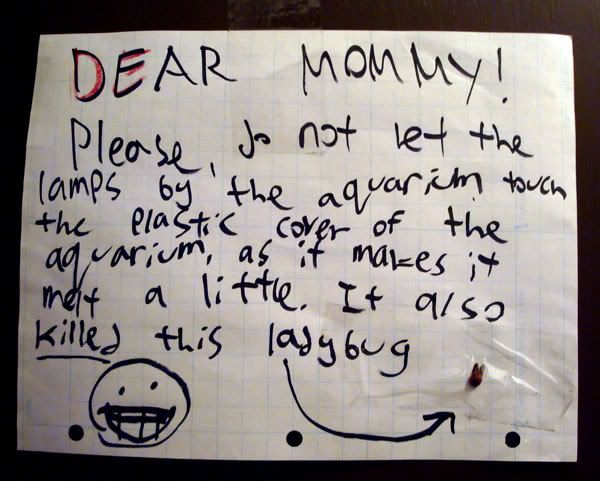 DEAR MOMMY!
Please, do not let the
lamps by the aquarium touch
the plastic cover of the
aquarium, as it makes it
melt a little. It also
killed this ladybug